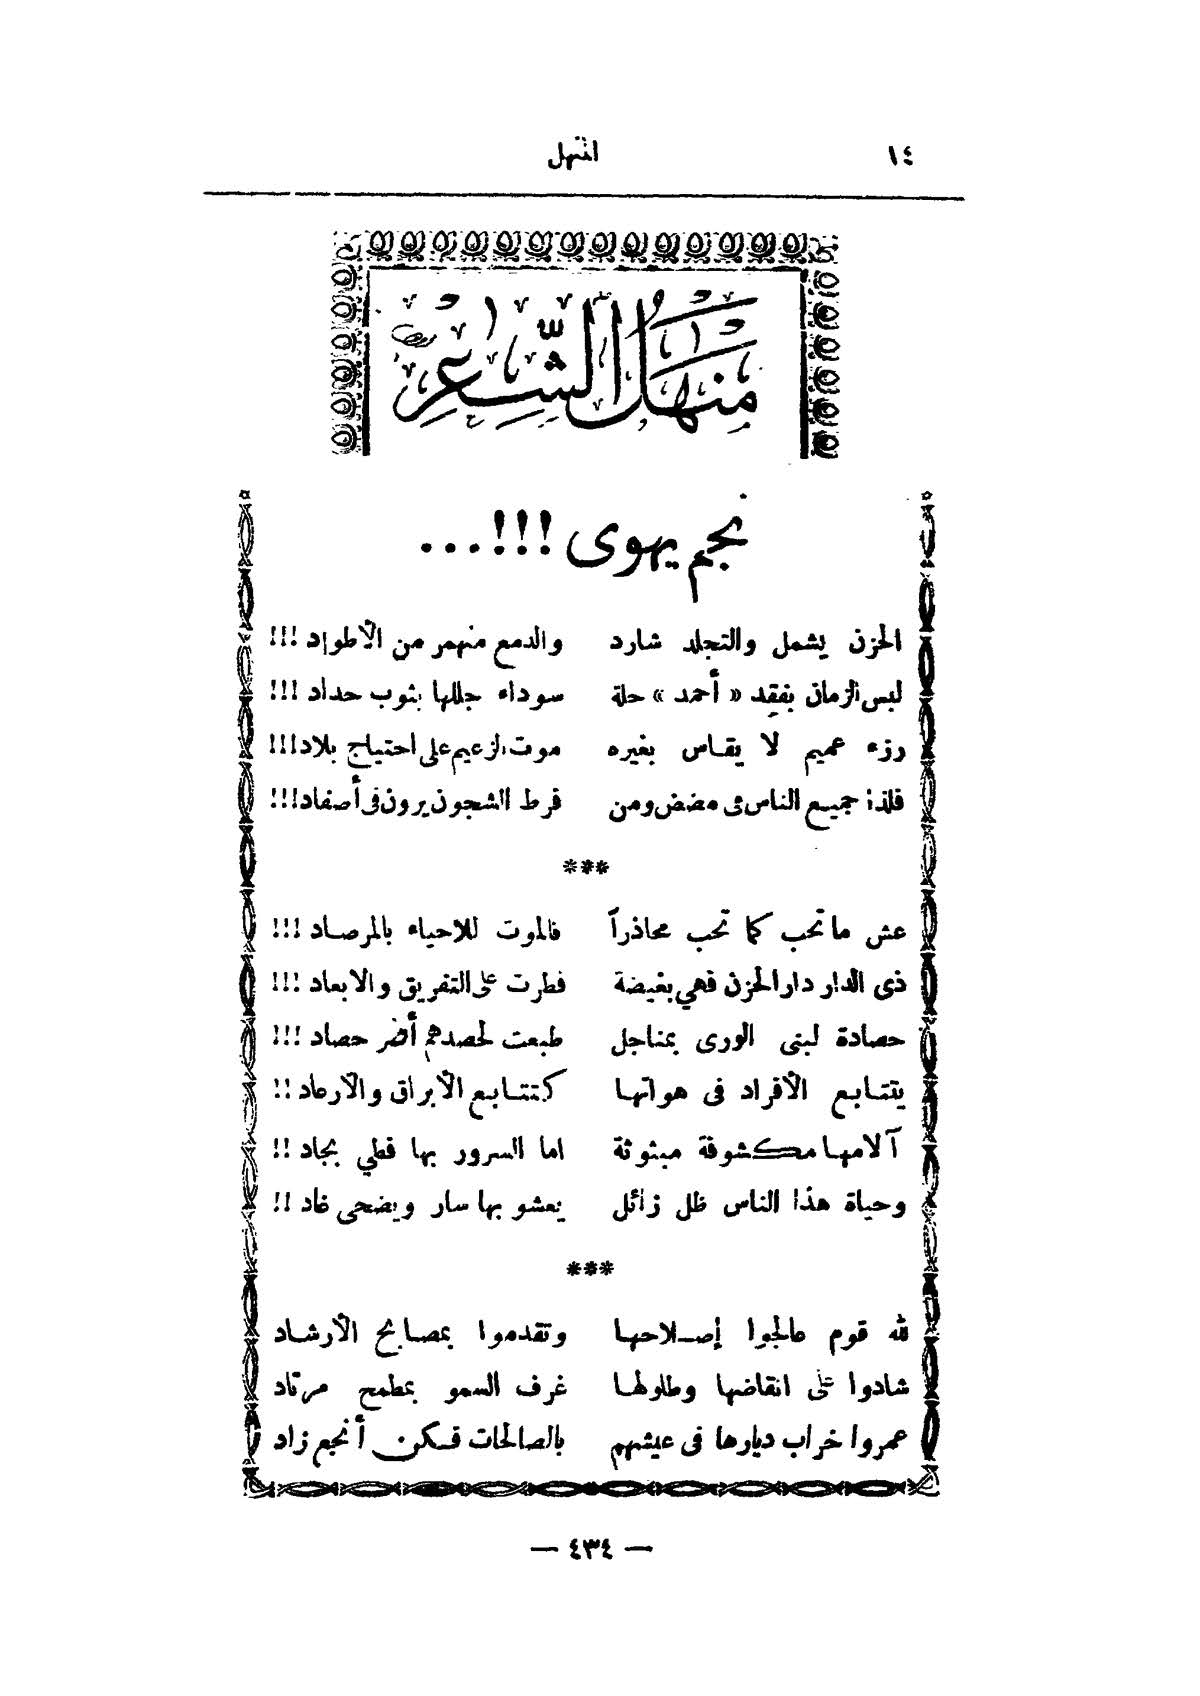 ١٤ المنهل
منهل الشاعر
نجم يهوى !!!...
الحزن يشمل والتجلد شارد والدمع منهمر من الأطواد !!!
لبس الزمان بفقد « أحمد » حلة سوداء جللها بثوب حداد !!!
رزء عميم لا يقاس بغيره موت الزعيم على احتياج بلاد !!!
فلذا جميع الناس فى مضض ومن فرط الشجون يرون فى أصفاد !!!
***
عش ما تحب كما تحب محاذراً فالموت للاحياء بالمرصاد !!!
ذى الدار دار الحزن فهي بغيضة فطرت على التفريق والابعاد !!!
حصادة لبنى الورى بمناجل طبعت لحصدهم أضر حصاد !!!
يتتابع الأفراد فى هواتها كتتابع الأبراق والأرعاد !!
آلامها مكشوفة مبثوثة اما السرور بها فطي بجاد !!
وحياة هذا الناس ظل زائل يعشو بها سار ويضحى غاد !!
***
لله قوم عالجوا إصلاحها وتقدموا بمصابح الأرشاد
شادوا على انقاضها وطلولها غرف السمو بمطمح مرتاد
عمروا خراب ديارها فى عيشهم بالصالحات فكن أنجع زاد
— ٤٣٤ —